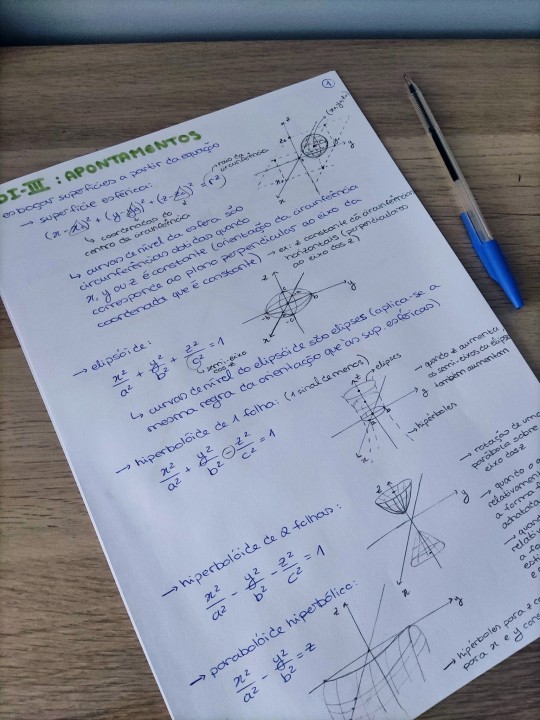 ①
DI-III : APONTAMENTOS
esboçar superfícies a partir da equação
→ superfície esférica:
(x-x₀)² + (y-y₀)² + (z-z₀)² = r²
raio da
circunferência
↳ coordenadas do
centro da circunferência
↳ curvas de nível da esfera são
circunferências obtidas quando
x, y ou z é constante (orientação da circunferência
corresponde ao plano perpendicular ao eixo da
coordenada que é constante)
→ ex: z constante dá circunferências
horizontais (perpendiculares
ao eixo dos z)
→ elipsóide:
x²/a² + y²/b² + z²/c² = 1
semi-eixo
dos z
↳ curvas de nível do elipsóide são elipses (aplica-se a
mesma regra da orientação que às sup. esféricas)
→ hiperbolóide de 1 folha: (1 sinal de menos)
x²/a² + y²/b² - z²/c² = 1
elipses
hipérboles
→ quando z aumenta
os semi-eixos da elipse
também aumentam
→ hiperbolóide de 2 folhas:
x²/a² - y²/b² - z²/c² = 1
→ rotação de uma
parábola sobre
eixo dos z
→ quando o
relativamente
a forma
achatada
→ quando
relativ
a fo
→ parabolóide hiperbólico:
x²/a² - y²/b² = z
→ hipérboles para z
para x e y cons